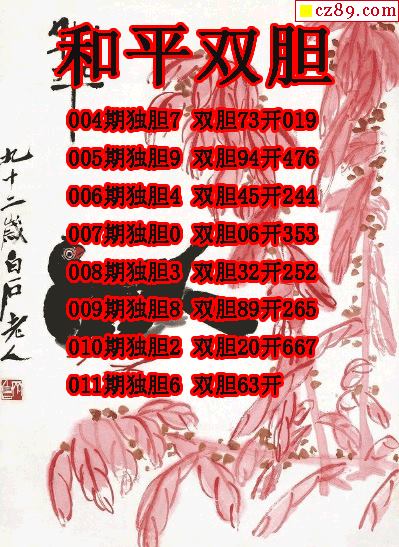 cz89.com
和平双胆
004期独胆7 双胆73开019
005期独胆9 双胆94开476
006期独胆4 双胆45开244
007期独胆0 双胆06开353
008期独胆3 双胆32开252
009期独胆8 双胆89开265
010期独胆2 双胆20开667
011期独胆6 双胆63开
九十二歲白石老人